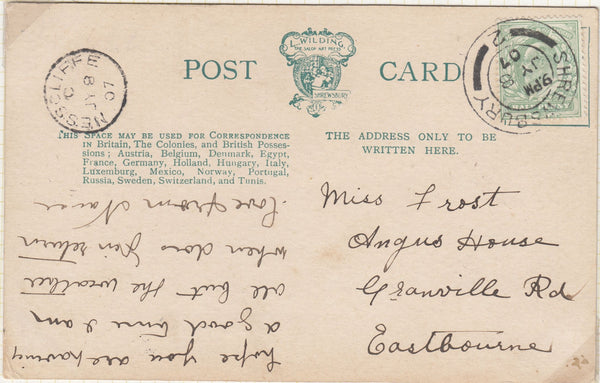 L. WILDING.
THE SALOP ART PRESS
SHREWSBURY
POST CARD
SHREWSBURY
9 PM
JY 8
07
2
NESSCLIFFE
JY 8
07
THIS SPACE MAY BE USED FOR CORRESPONDENCE
in Britain, The Colonies, and British Posses-
sions; Austria, Belgium, Denmark, Egypt,
France, Germany, Holland, Hungary, Italy,
Luxemburg, Mexico, Norway, Portugal,
Russia, Sweden, Switzerland, and Tunis.
THE ADDRESS ONLY TO BE
WRITTEN HERE.
Miss Frost
Angus House
Granville Rd
Eastbourne
hope you are having
a good time I am
all but the weather
when does return
love from